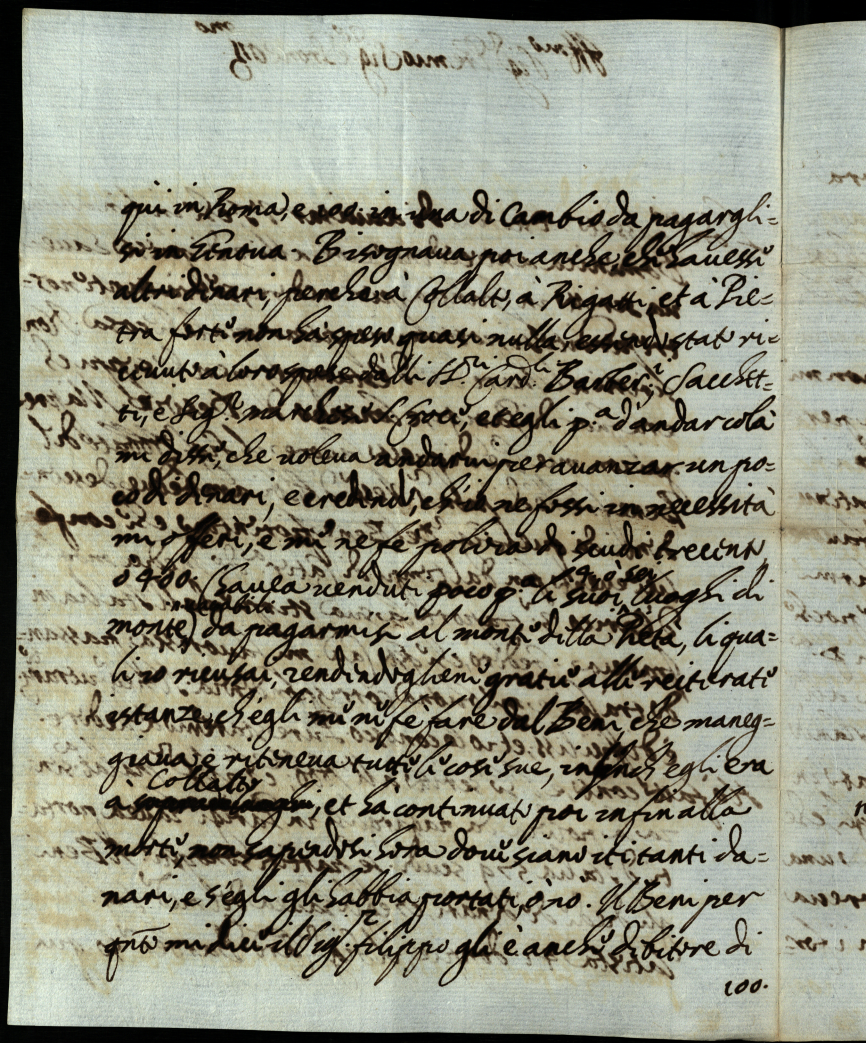 qui in Roma, e 100 in una di Cambio da pagargli=
si in Genova. Bisognaua poi anche, ch'hauesse
altri dinari, perche à Collalto, à Rigatti, et à Pie=
tra forte non ha speso quasi nulla, essendo stato ri=
ceuuto à loro spese dalli SS.ri Card.li Barber.i, Sacchet=
ti, e Sig.r marchese, et egli p.a d'andar colà
mi disse, che uoleua andarui per auanzar un po=
co di dinari, e credendo, ch'io ne fossi in necessità
mi offerì, e mi ne fè poliza di scudi trecento
ò 400 (haueua uenduti poco p.a li suoi 4, ò sei luoghi di
monte) da pagarmisi al monte della Pietà, li qua=
li io ricusai, rendendogliene gratie alle reiterate
istanze, ch'egli mi ne fè fare dal Beni, che maneg=
giaua, e riteneua tutte le cose sue, quand'egli era
à Collalto, et ha continuato poi in fin alla
morte, non sapendosi hora doue siano iti tanti da=
nari, e s'egli gli habbia portati, ò nò. Il Beni per
qnto mi dice il Sig.r filippo gli è anche debitore di
100.